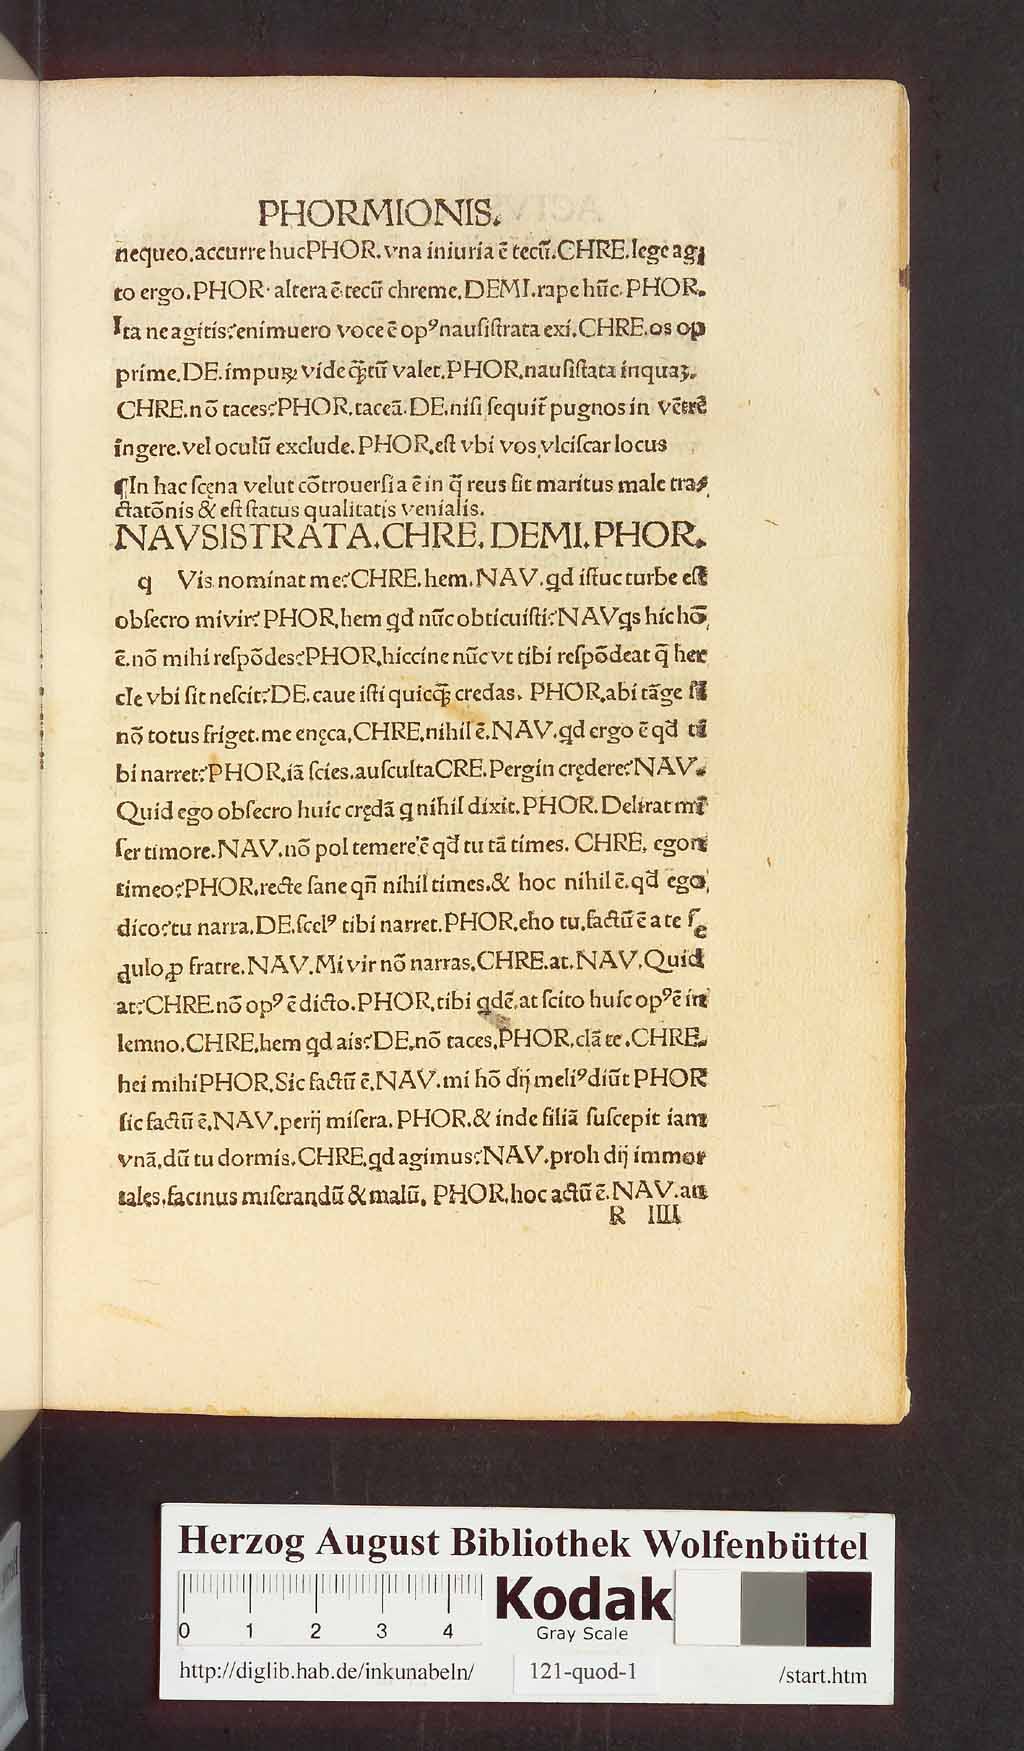 PHORMIONIS.
nequeo.accurre hucPHOR.vna iniuria ē tecū.CHRE.lege agi
to ergo.PHOR· altera ē tecū chreme.DEMI.rape hūc.PHOR.
Ita ne agitis?enimuero voce ē opꝰ nausistrata exi.CHRE.os op
prime.DE.impuꝝ vide ꝙ̄tū valet.PHOR.nausistata inquaꝫ.
CHRE.nō taces?PHOR.taceā.DE.nisi sequit̄ pugnos in vētrē
īngere.vel oculū exclude.PHOR.est vbi vos vlciscar locus
¶In hac scęna velut cōtrouersia ē in q̄ reus fit maritus male tra
ctatōnis & est status qualitatis venialis.
NAVSISTRATA.CHRE.DEMI.PHOR.
q Vis nominat me?CHRE.hem.NAV.qd istuc turbe est
obsecro mi vir?PHOR.hem qd nūc obticuisti?NAVqs hic hō
ē.nō mihi respōdes?PHOR.hiccine nūc vt tibi respōdeat q̄ her
cle vbi sit nescit?DE.caue isti quicꝙ̄ credas. PHOR.abi tāge si
nō totus friget.me enęca.CHRE.nihil ē.NAV.qd ergo ē qd̄ ti
bi narret?PHOR.iā scies.auscultaCRE.Pergin crędere?NAV.
Quid ego obsecro huic crędā q nihil dixit.PHOR.Delirat mi
ser timore.NAV.nō pol temere ē qd̄ tu tā times. CHRE. egon
timeo?PHOR.recte sane qn̄ nihil times.& hoc nihil ē.qd̄ ego
dico?tu narra.DE.scelꝰ tibi narret.PHOR.eho tu.factū ē a te se
qulo ꝓ fratre.NAV.Mi vir nō narras.CHRE.at.NAV.Quid
at?CHRE.nō opꝰ ē dicto.PHOR.tibi qdē.at scito huic opꝰ ē in
lemno.CHRE.hem qd ais?DE.nō taces.PHOR.clā te.CHRE.
hei mihiPHOR.Sic factū ē.NAV.mi hō dij meliꝰ diūt PHOR
sic factū ē.NAV.perij misera. PHOR.& inde filiā suscepit iam
vnā.dū tu dormis.CHRE.qd agimus?NAV.proh dij immor
tales.facinus miserandū & malū. PHOR.hoc actū ē.NAV.an
R IIII
Herzog August Bibliothek Wolfenbüttel
Kodak
Gray Scale
0 1 2 3 4
http://diglib.hab.de/inkunabeln/ 121-quod-1 /start.htm